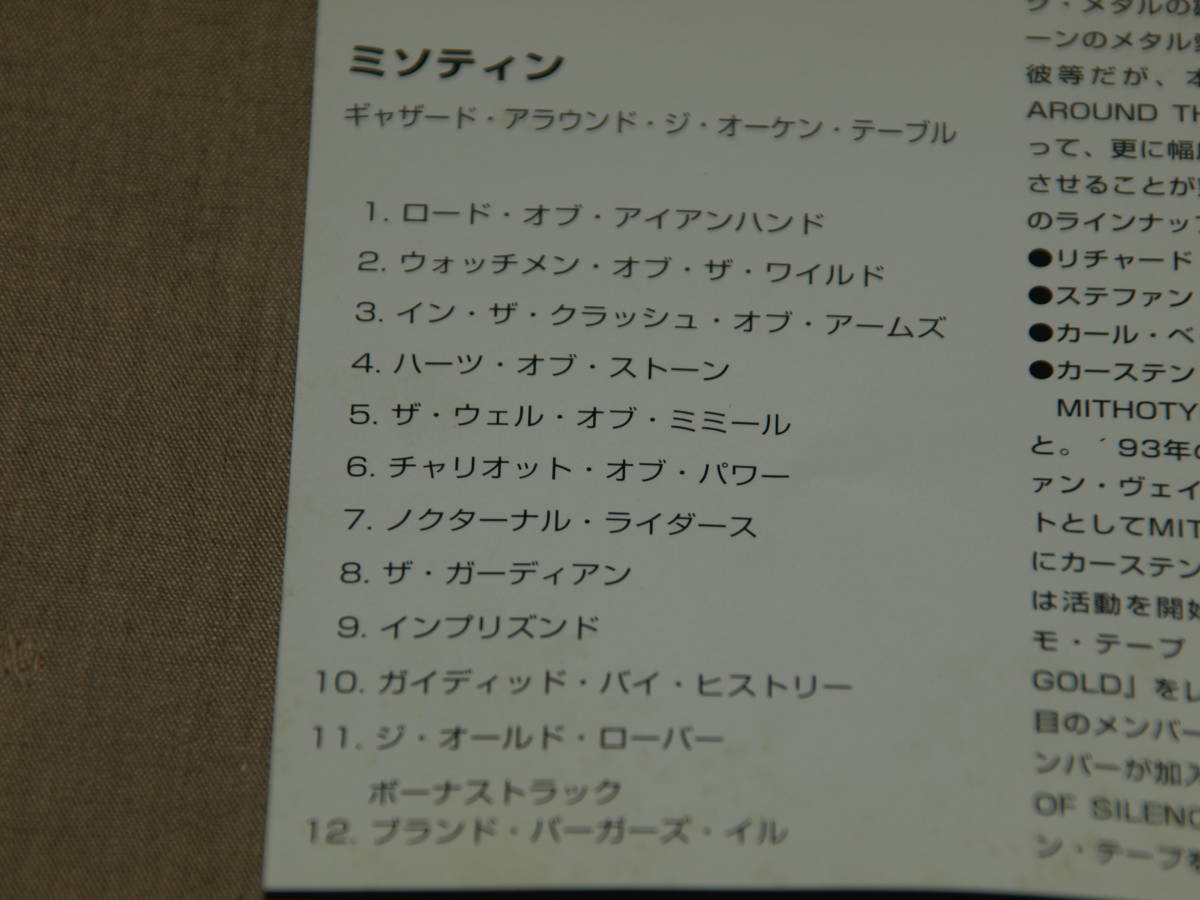 ミソティン
ギャザード・アラウンド・ジ・オーケン・テーブル
1. ロード・オブ・アイアンハンド
2. ウォッチメン・オブ・ザ・ワイルド
3. イン・ザ・クラッシュ・オブ・アームズ
4. ハーツ・オブ・ストーン
5. ザ・ウェル・オブ・ミミール
6. チャリオット・オブ・パワー
7. ノクターナル・ライダース
8. ザ・ガーディアン
9. インプリズンド
10. ガイディッド・バイ・ヒストリー
11. ジ・オールド・ローバー
ボーナストラック
12. ブランド・バーガーズ・イル
グ・メタルの
ーンのメタル
彼等だが、本
AROUND TH
って、更に幅
させることが
のラインナッ
●リチャード
●ステファン
●カール・ベ
●カーステン
MITHOTY
と。´93年の
ァン・ヴェイ
トとしてMIT
にカーステン
は活動を開始
モ・テープ
GOLD』をレ
目のメンバー
ンバーが加入
OF SILENC
ン・テープを